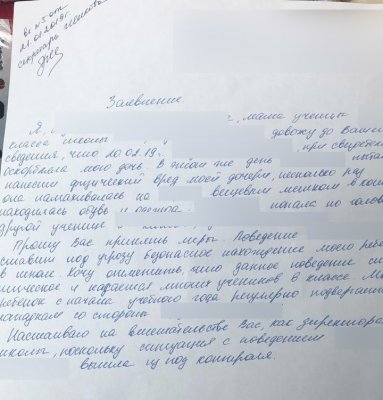 Вх №5 от
21.02.2019г.
секретарь
Заявление
Я, г., мама учени
класса "школы довожу до Вашего
сведения, что 20.02.19. , при свидетел
оскорбляла мою дочь. В этот же день пыта
нанести физический вред моей дочери, несколько раз
она замахивалась на вещевым мешком в кото
находилась обувь и попала по голове
другой ученице
Прошу Вас принять меры. Поведение
ставит под угрозу безопасное нахождение моего ребе
в школе. Хочу отметить, что данное поведение си
и касается многих учеников в классе. Мо
ребенок с начала учебного года регулярно подвергается
нападкам со стороны
Настаиваю на вмешательстве Вас, как директора
школы, поскольку ситуация с поведением
вышла из под контроля.